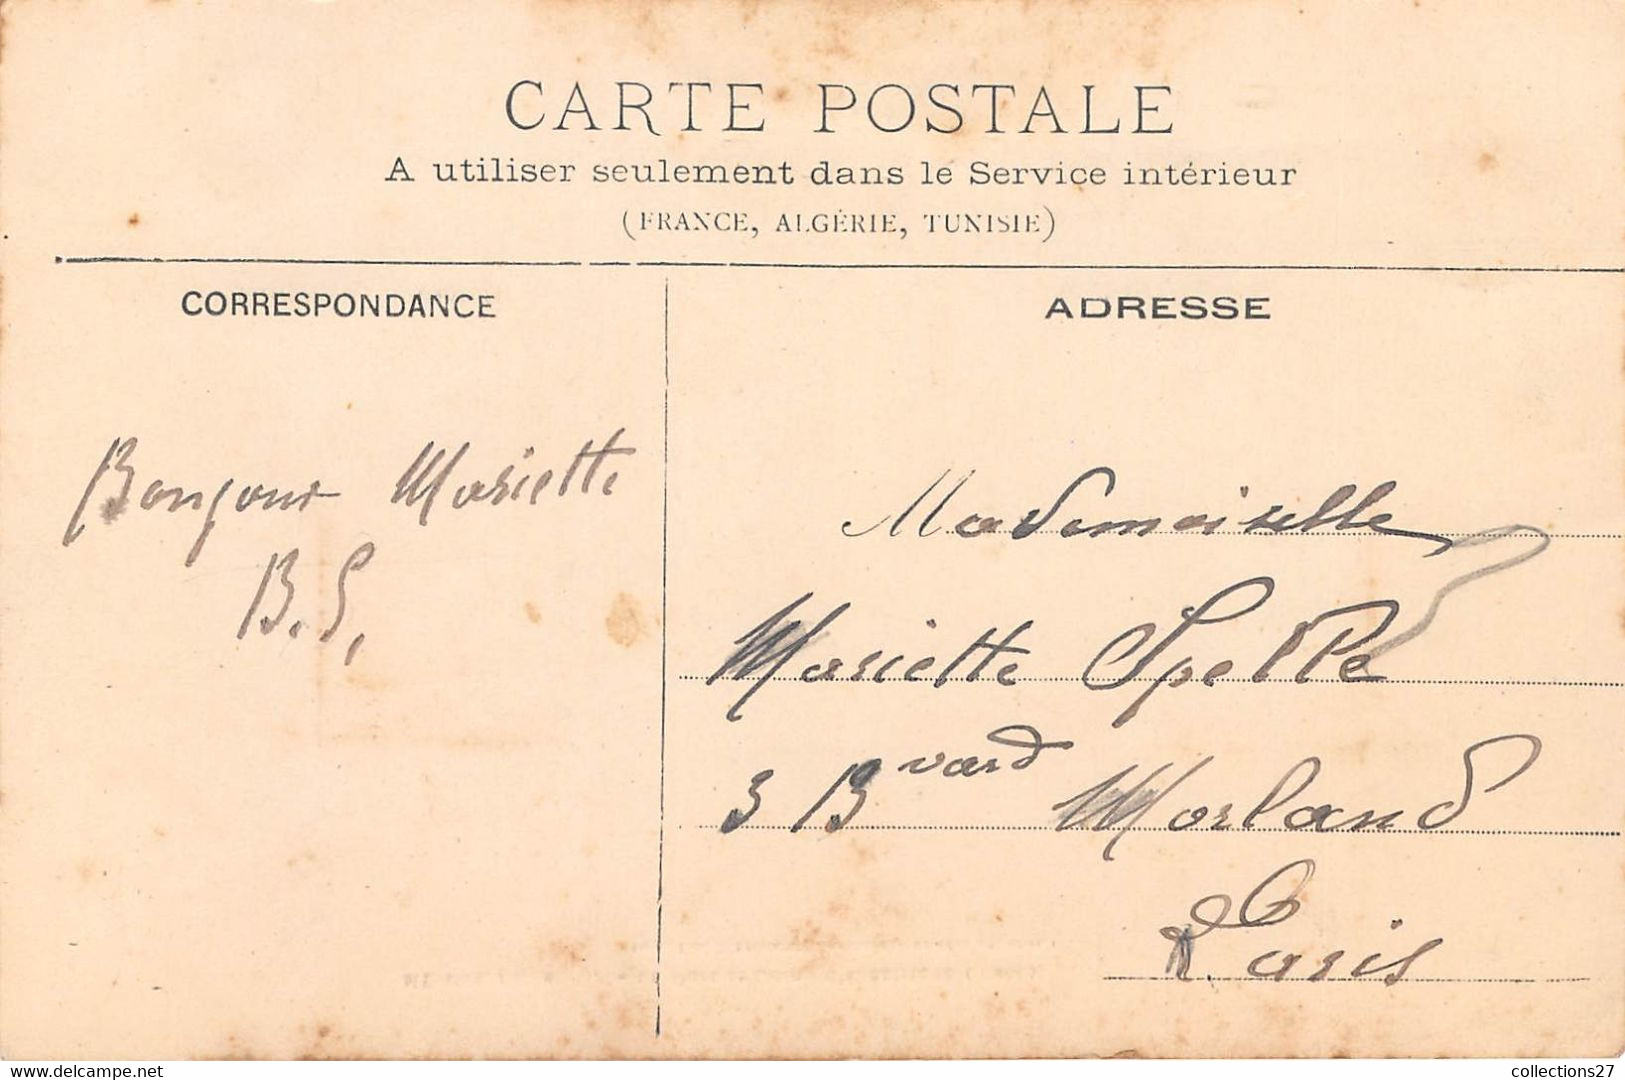 CARTE POSTALE
A utiliser seulement dans le Service intérieur
(FRANCE, ALGÉRIE, TUNISIE)
CORRESPONDANCE
ADRESSE
Bonjour Mariette
B. S,
Mademoiselle
Mariette
3 Bvard Morland
Paris
www.delcampe.net
collections27